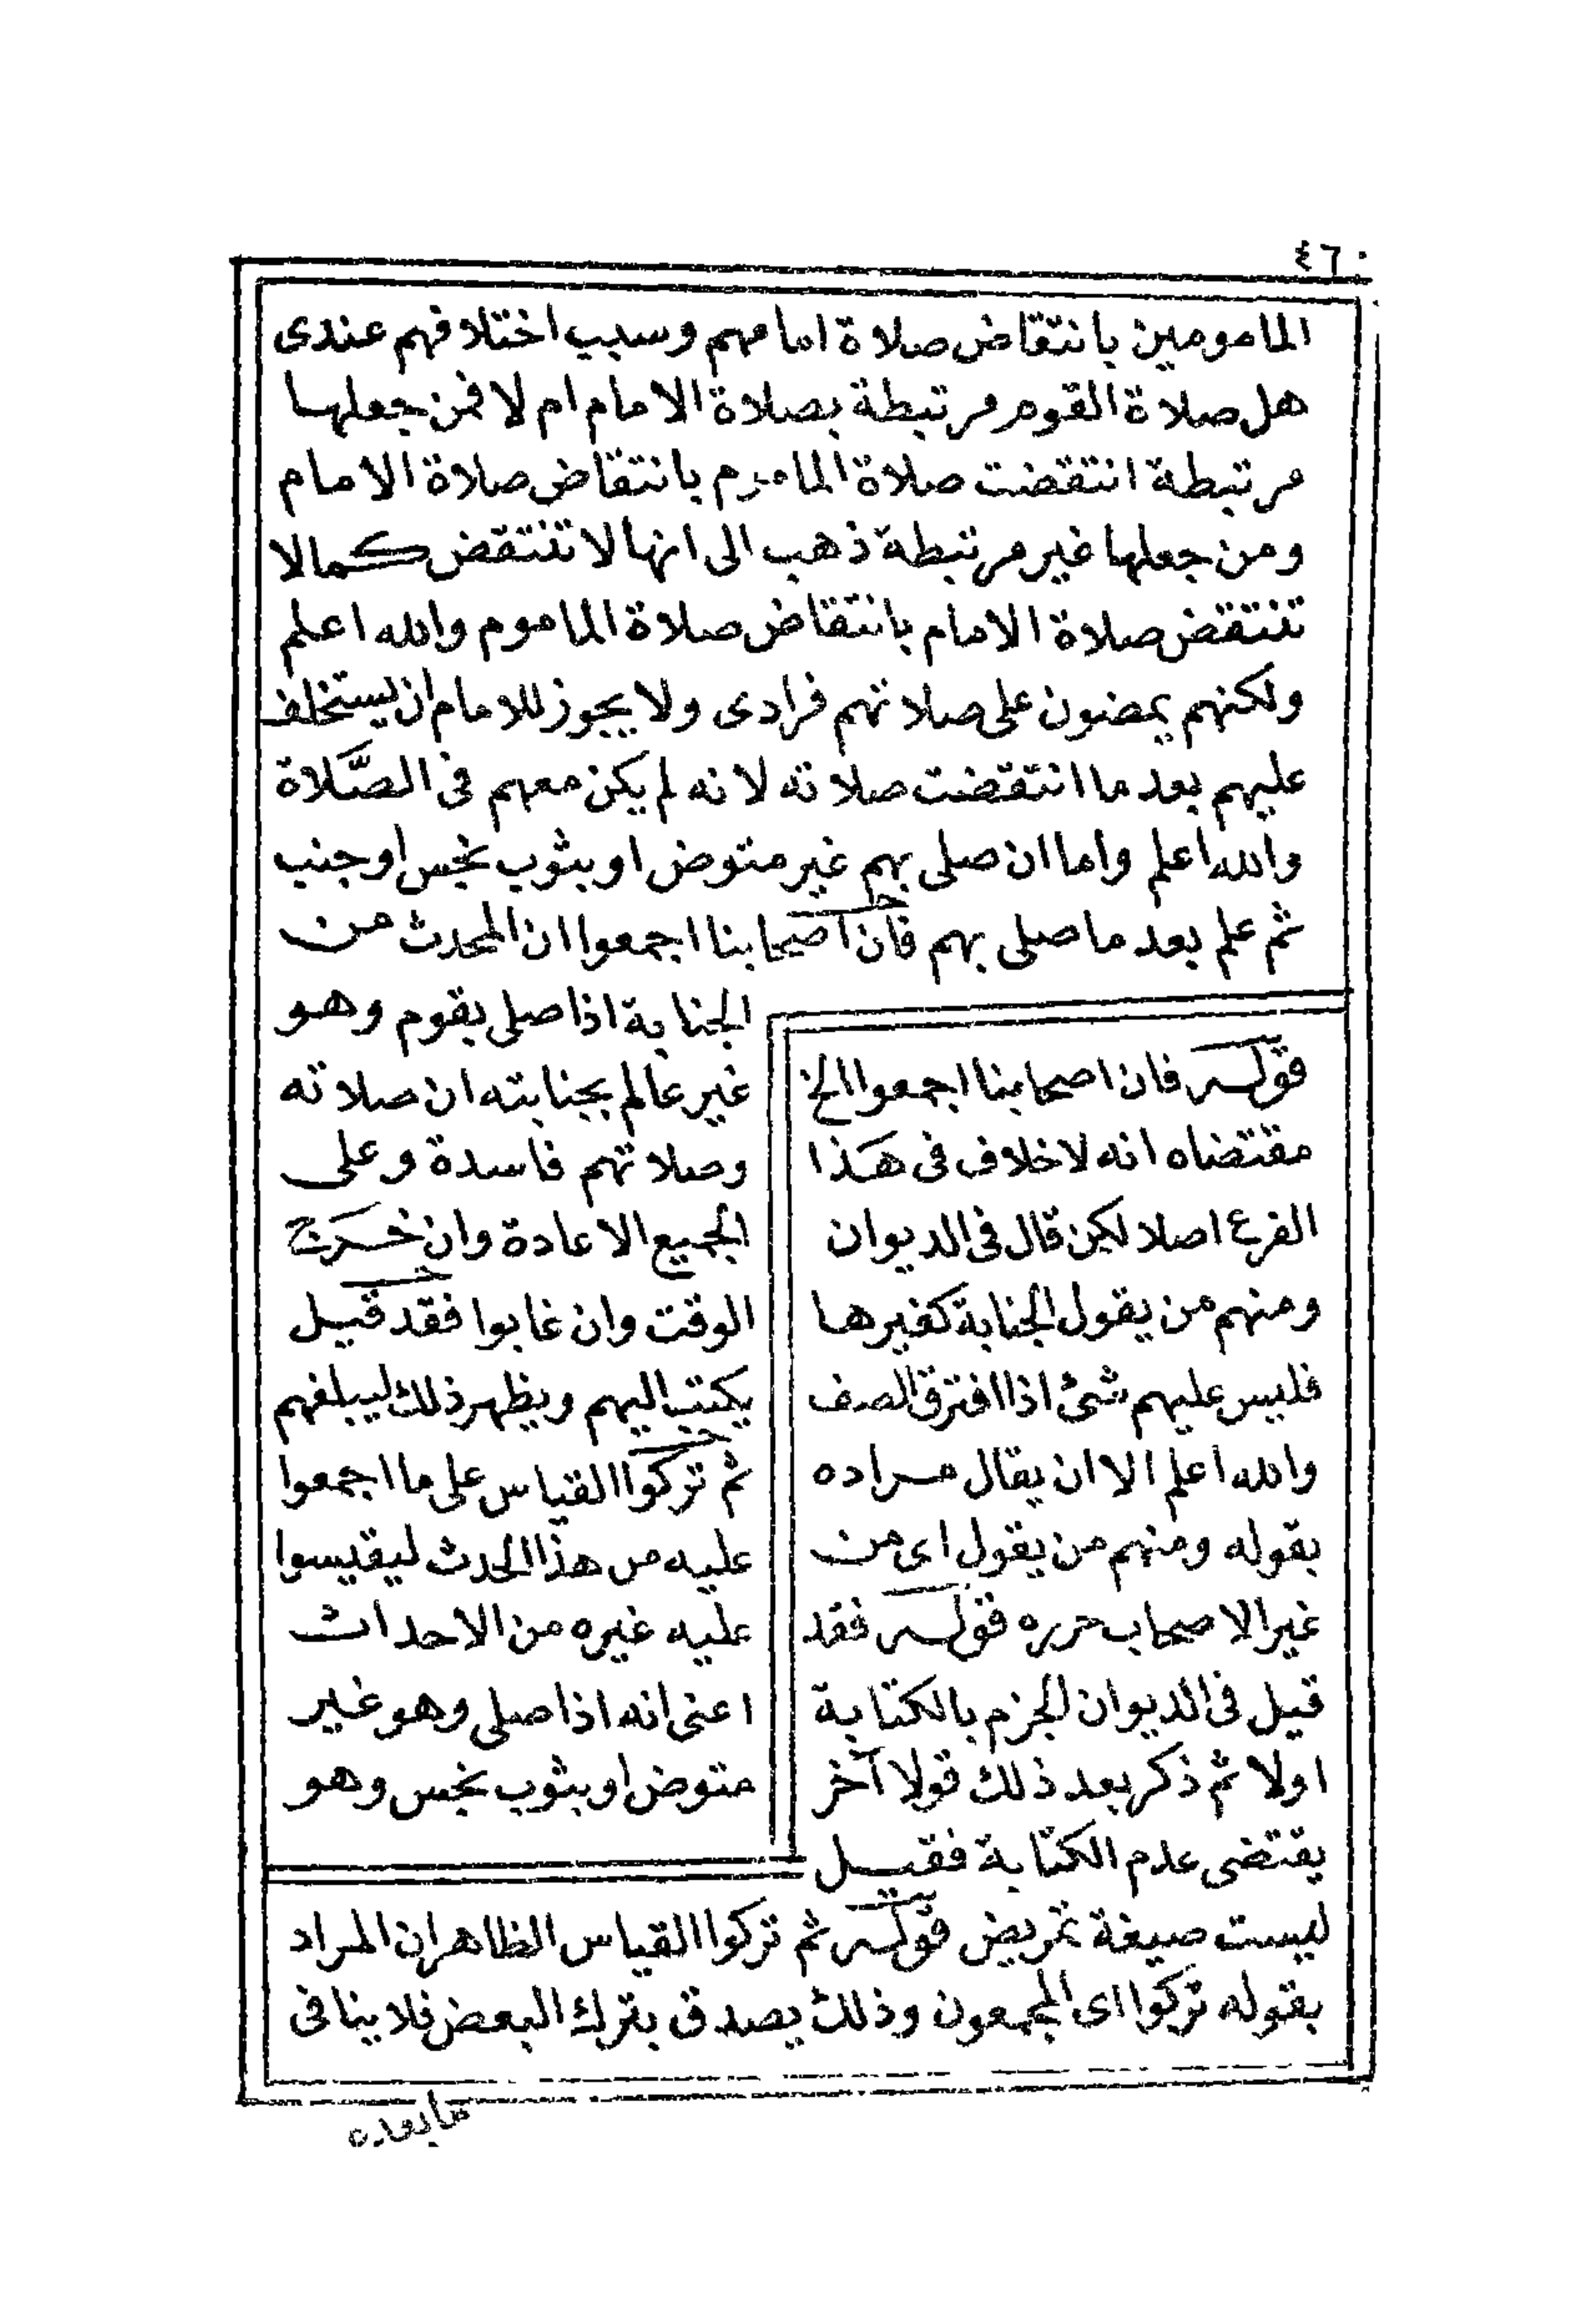 ٤٦٠
المامومين بانتقاض صلاة امامهم وسبب اختلافهم عندى
هل صلاة القوم مرتبطة بصلاة الامام ام لا فمن جعلها
مرتبطة انتقضت صلاة الماموم بانتقاض صلاة الامام
ومن جعلها غير مرتبطة ذهب الى انها لا تنتقض كما لا
تنتقض صلاة الامام بانتقاض صلاة الماموم والله اعلم
ولكنهم يمضون على صلاتهم فرادى ولا يجوز للامام ان يستخلف
عليهم بعد ما انتقضت صلاته لانه لم يكن معهم فى الصَّلاة
والله اعلم واما ان صلى بهم غير متوض او بثوب نجس او جنب
ثم علم بعد ما صلى بهم فان اصحابنا اجمعوا ان المحدث من
الجنابة اذا صلى بقوم وهو
غير عالم بجنابته ان صلاته
وصلاتهم فاسدة وعلى
الجميع الاعادة وان خرج
الوقت وان غابوا فقد قيل
يكتب اليهم ويظهر ذلك ليبلغهم
ثم تركوا القياس على ما اجمعوا
عليه من هذا الحدث ليقيسوا
عليه غيره من الاحداث
اعنى انه اذا صلى وهو غير
متوض او بثوب نجس وهو
قوله فان اصحابنا اجمعوا الخ
مقتضاه انه لا خلاف فى هذا
الفرع اصلا لكن قال فى الديوان
ومنهم من يقول الجنابة كغيرها
فليس عليهم شئ اذا افترق الصف
والله اعلم الا ان يقال مراده
بقوله ومنهم من يقول اى من
غير الاصحاب حرره قوله فقد
قيل فى الديوان الجزم بالكتابة
اولا ثم ذكر بعد ذلك قولا آخر
يقتضى عدم الكتابة فقيل
ليست صيغة تمريض قوله ثم تركوا القياس الظاهر ان المراد
بقوله تركوا اى المجمعون وذلك يصدق بترك البعض فلا ينافى
ما بعده